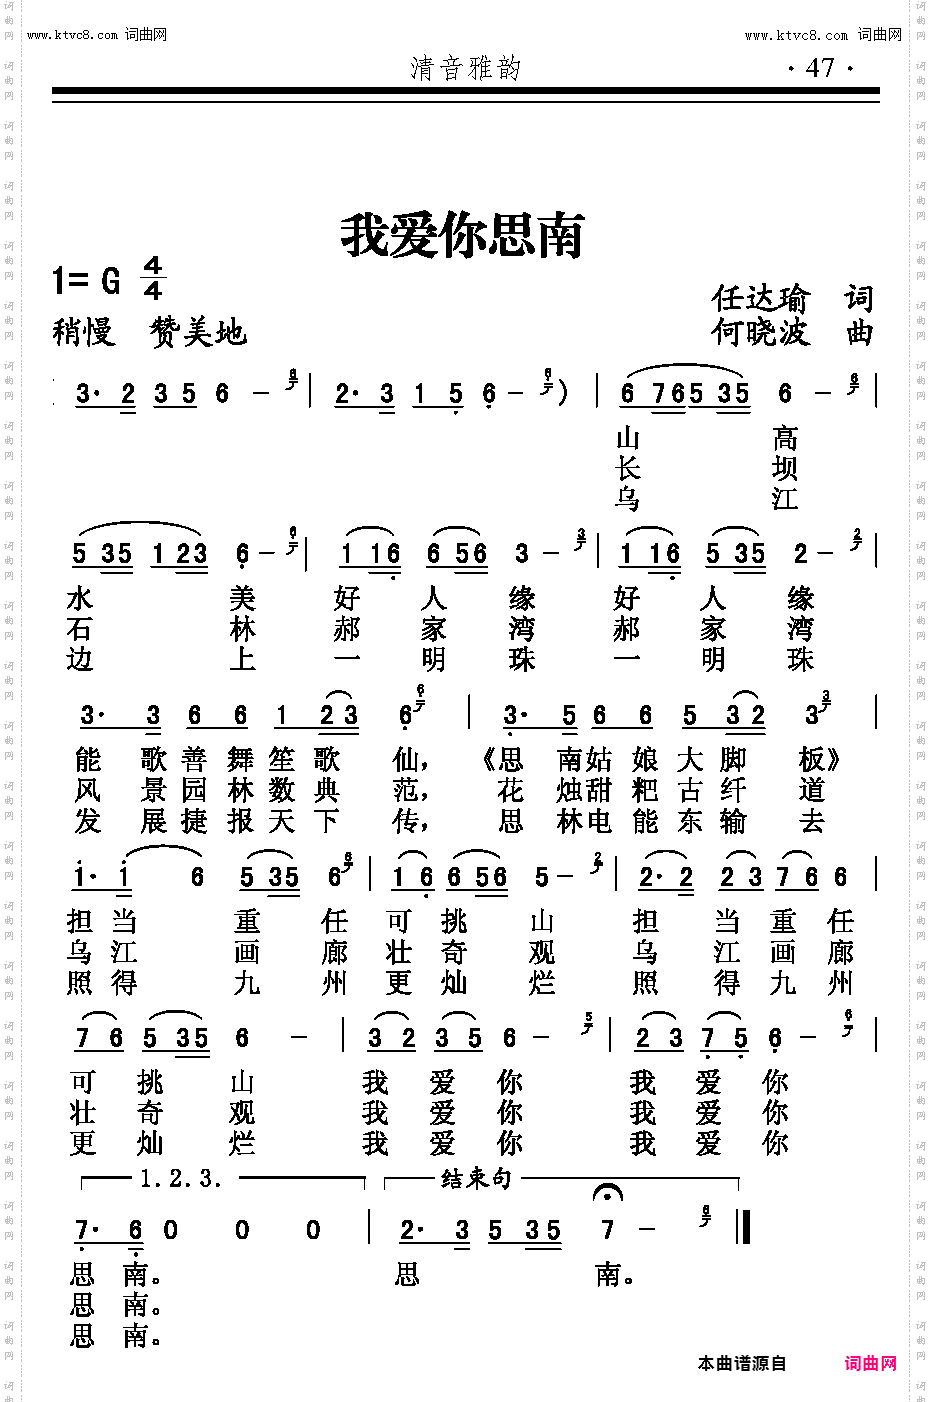 www.ktvc8.com 词曲网 www.ktvc8.com 词曲网
清音雅韵 · 47 ·
我爱你思南
1= G 4/4
任达瑜 词
稍慢 赞美地 何晓波 曲
3· 2 3 5 6 － | 2· 3 1 5 6 － ) | 6 7 6 5 3 5 6 － |
山 高
长 坝
乌 江
5 3 5 1 2 3 6 － | 1 1 6 6 5 6 3 － | 1 1 6 5 3 5 2 － |
水 美 好 人 缘 好 人 缘
石 林 郝 家 湾 郝 家 湾
边 上 一 明 珠 一 明 珠
3· 3 6 6 1 2 3 6 | 3· 5 6 6 5 3 2 3 |
能 歌 善 舞 笙 歌 仙， 《思 南 姑 娘 大 脚 板》
风 景 园 林 数 典 范， 花 烛 甜 粑 古 纤 道
发 展 捷 报 天 下 传， 思 林 电 能 东 输 去
1· 1 6 5 3 5 6 | 1 6 6 5 6 5 － | 2· 2 2 3 7 6 6 |
担 当 重 任 可 挑 山 担 当 重 任
乌 江 画 廊 壮 奇 观 乌 江 画 廊
照 得 九 州 更 灿 烂 照 得 九 州
7 6 5 3 5 6 － | 3 2 3 5 6 － | 2 3 7 5 6 － |
可 挑 山 我 爱 你 我 爱 你
壮 奇 观 我 爱 你 我 爱 你
更 灿 烂 我 爱 你 我 爱 你
1.2.3. 结束句
7· 6 0 0 0 | 2· 3 5 3 5 7 － ‖
思 南。 思 南。
思 南。
思 南。
本曲谱源自 词曲网